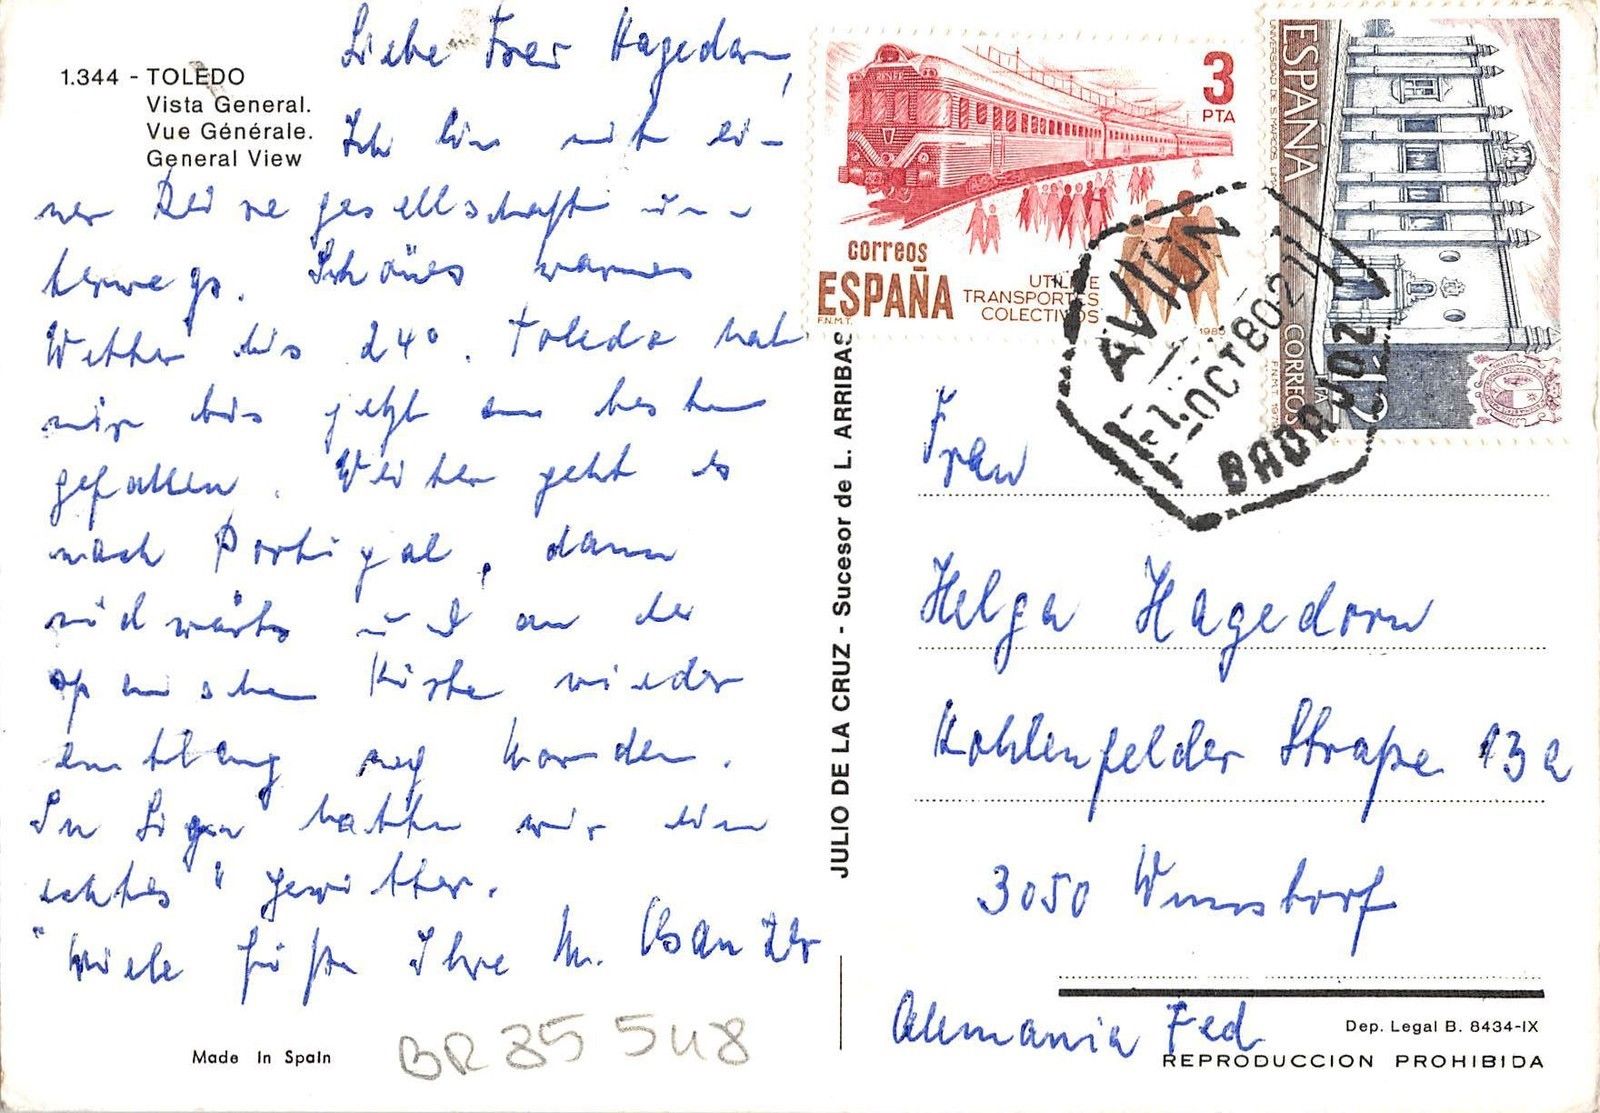 1.344 - TOLEDO
Vista General.
Vue Générale.
General View
Liebe Frau Hagedorn,
Ich bin mit ei-
ner Reisegesellschaft un-
terwegs. Schönes warmes
Wetter bis 24°. Toledo hat
mir bis jetzt am besten
gefallen. Weiter geht es
nach Portugal, dann
südwärts und an der
spanischen Küste wieder
entlang nach Norden.
In hatten wir ein
"echtes" Gewitter.
Viele Grüße Ihre M.
Made in Spain
BR 85 548
JULIO DE LA CRUZ - Sucesor de L. ARRIBAS
3
PTA
RENFE
correos
ESPAÑA
F.N.M.T.
UTILICE
TRANSPORTES
COLECTIVOS
1980
ESPAÑA
CORREOS
12
PTA
AVION
OCT 80
BADAJOZ
Frau
Helga Hagedorn
Kohlenfelder Straße 13a
3050 Wunstorf
Alemania Fed
Dep. Legal B. 8434-IX
REPRODUCCION PROHIBIDA